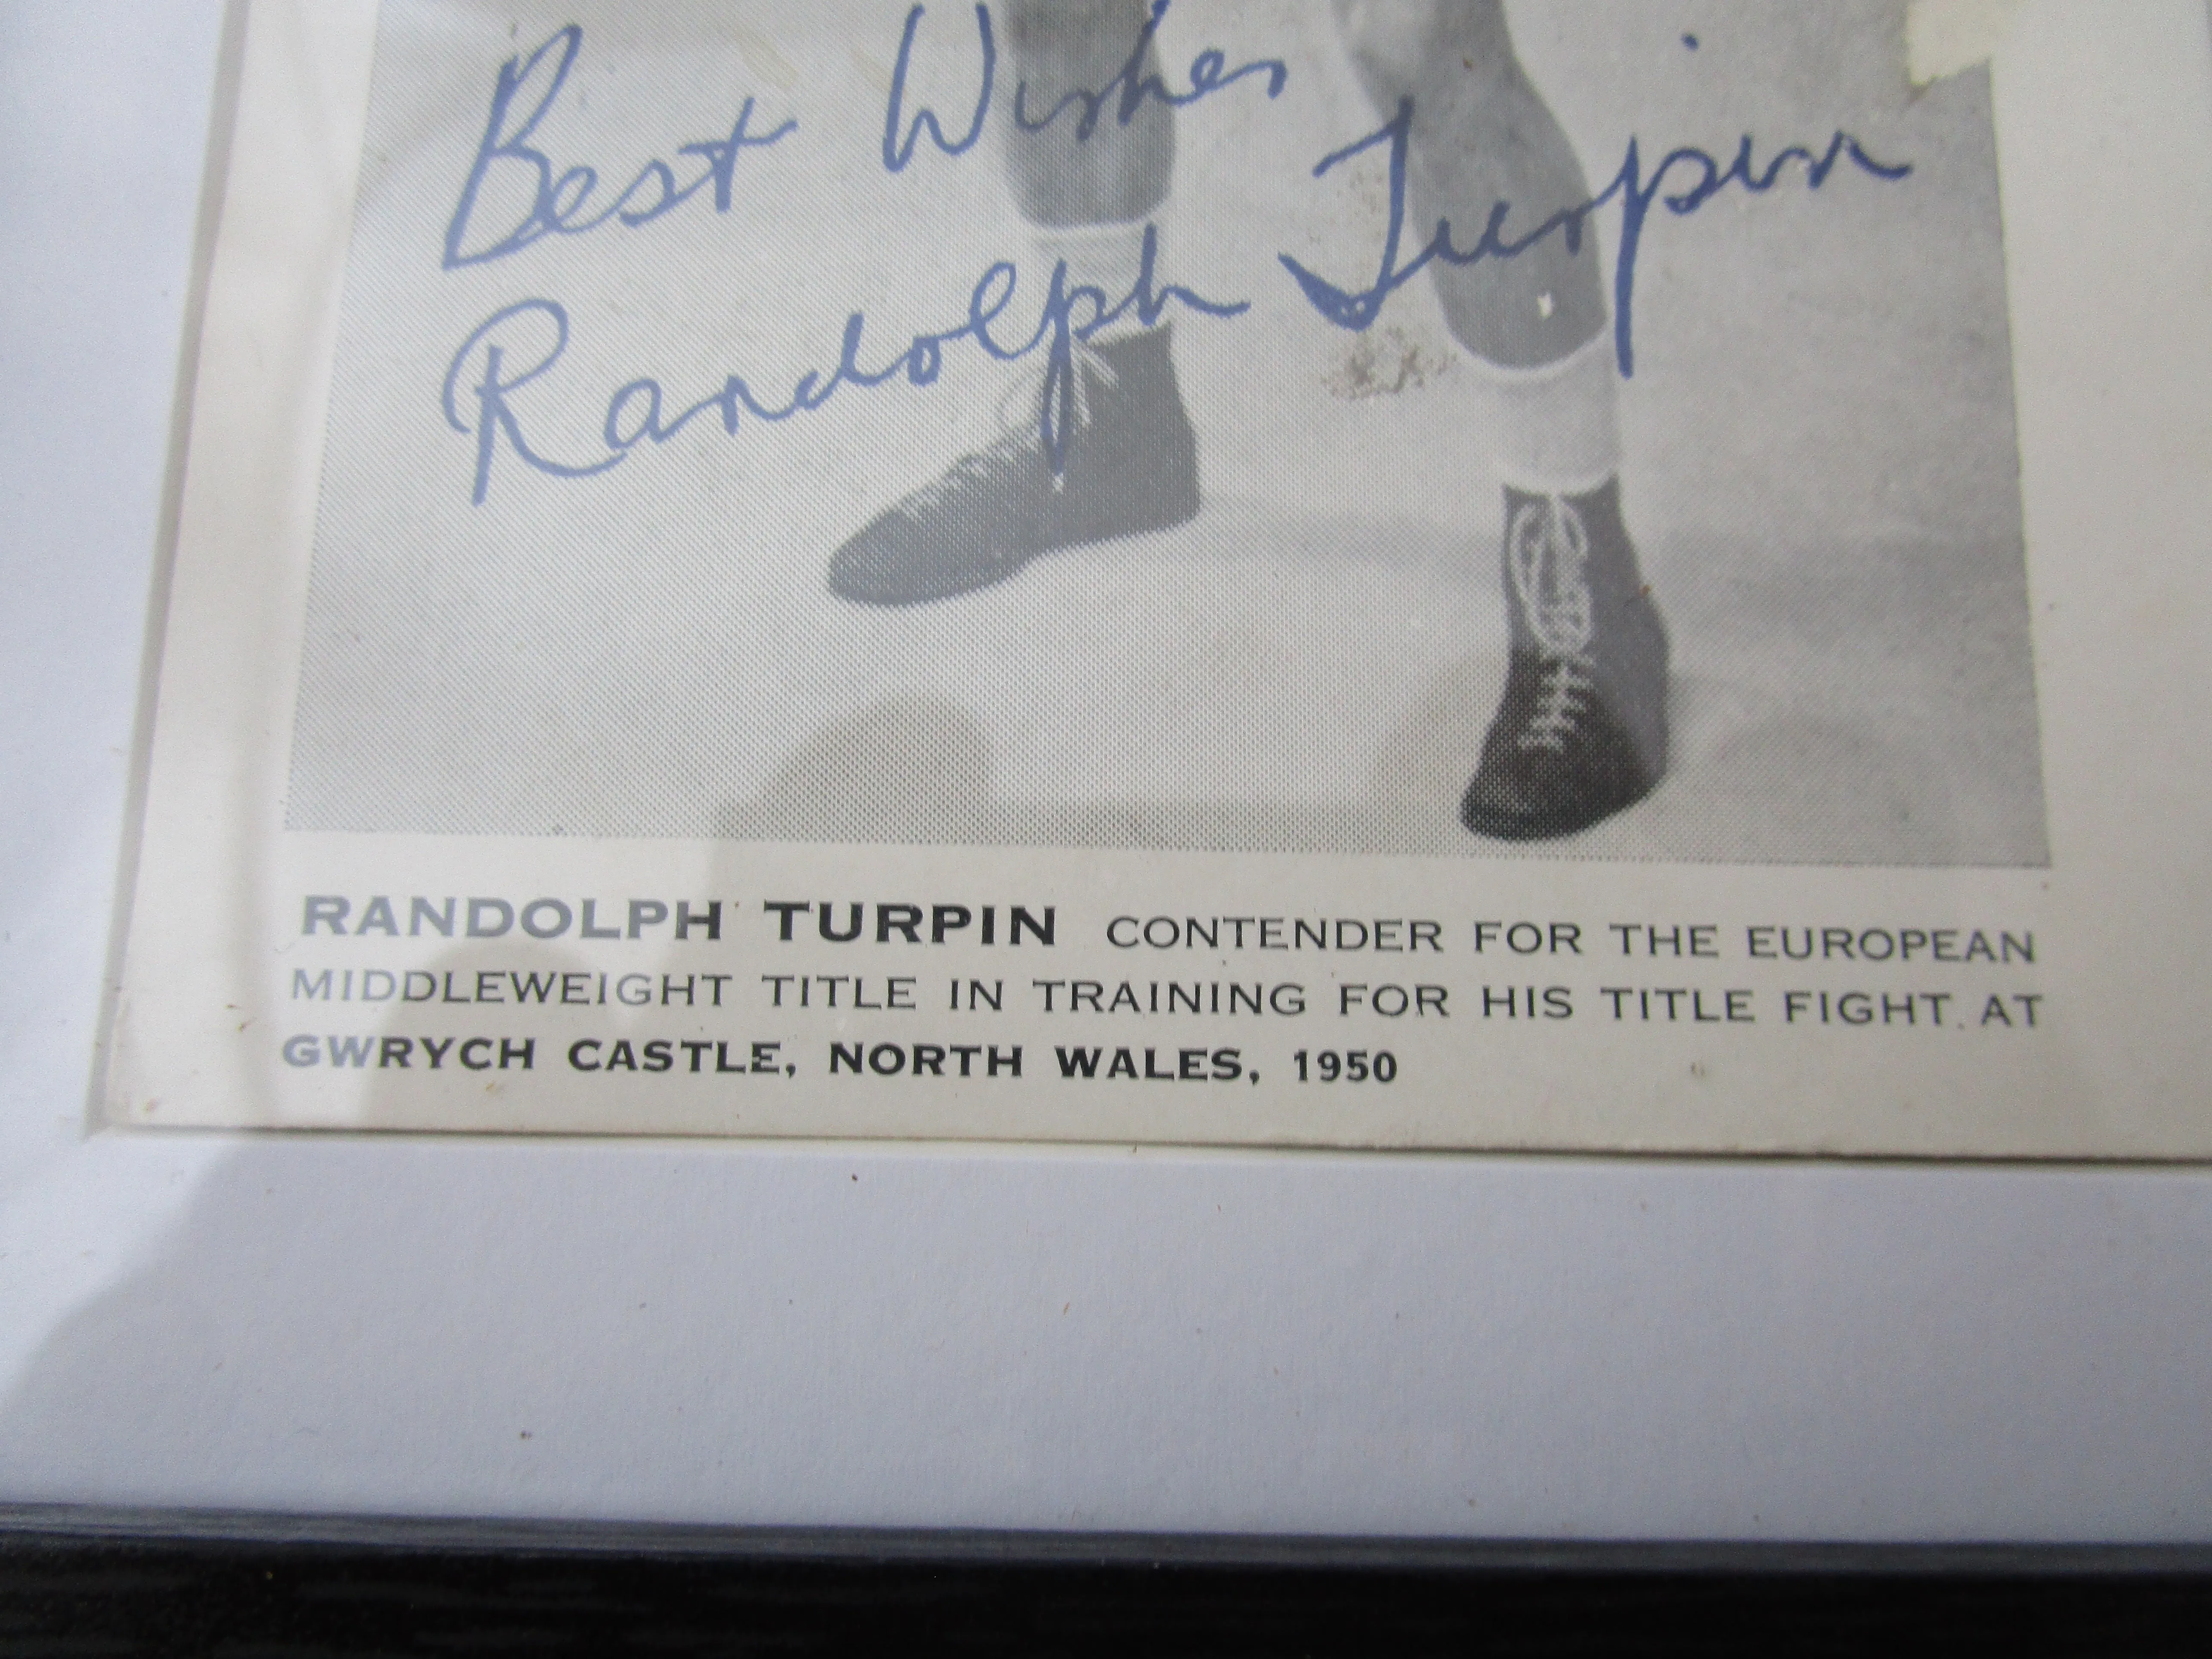 Best Wishes
Randolph Turpin
RANDOLPH TURPIN CONTENDER FOR THE EUROPEAN
MIDDLEWEIGHT TITLE IN TRAINING FOR HIS TITLE FIGHT. AT
GWRYCH CASTLE, NORTH WALES, 1950